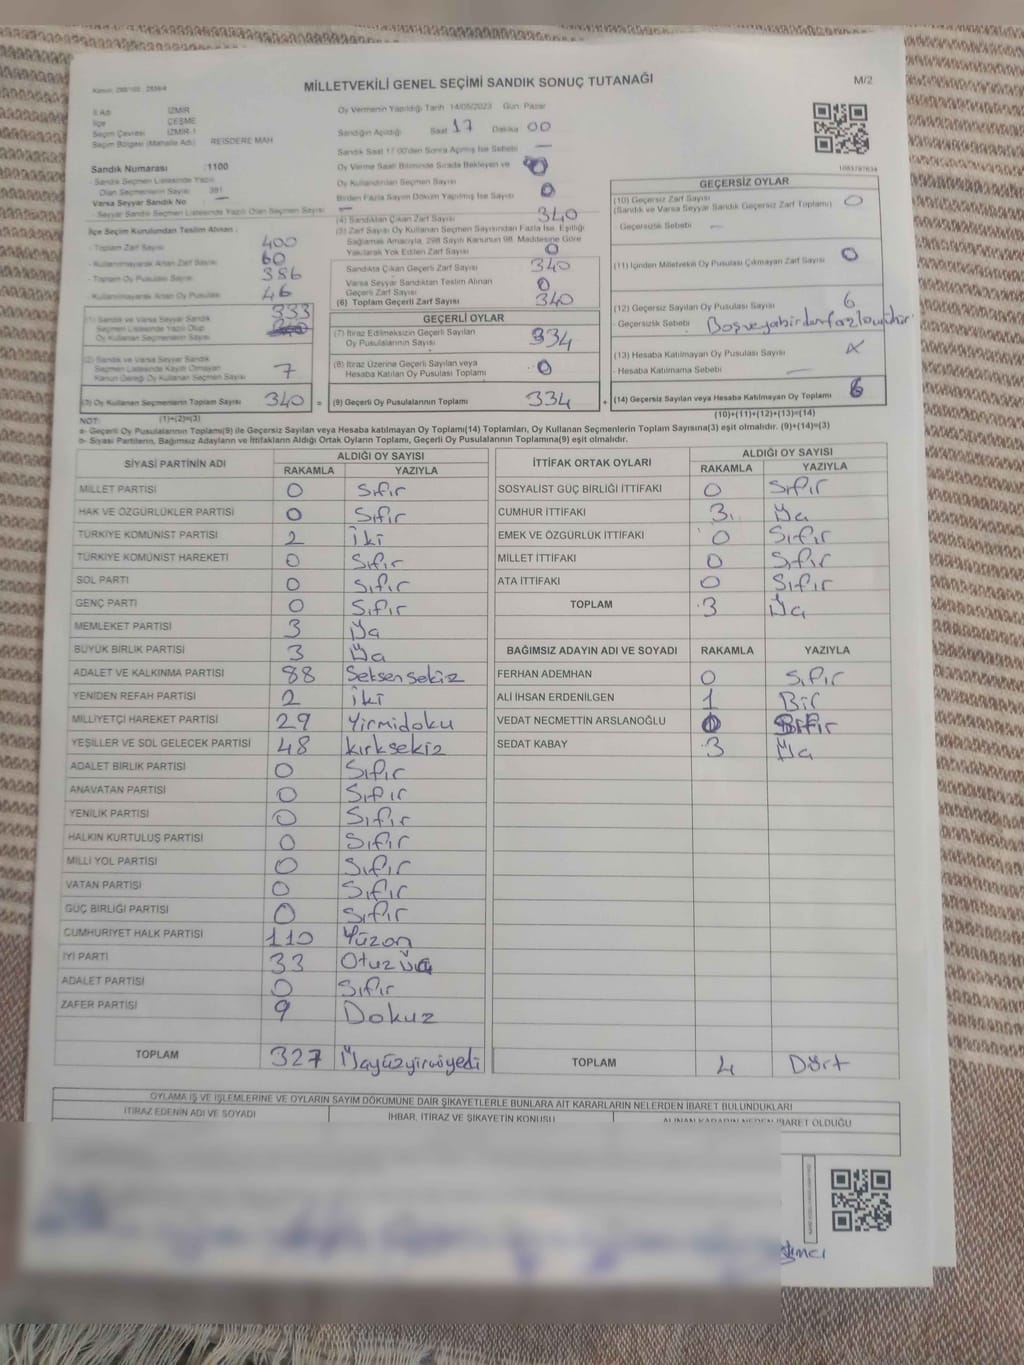 MİLLETVEKİLİ GENEL SEÇİMİ SANDIK SONUÇ TUTANAĞI
M/2
İl Adı İZMİR
İlçe ÇEŞME
Seçim Çevresi İZMİR-1
Seçim Bölgesi (Mahalle Adı) REİSDERE MAH
Sandık Numarası :1100
- Sandık Seçmen Listesinde Yazılı
Olan Seçmenlerin Sayısı 391
Varsa Seyyar Sandık No
- Seyyar Sandık Seçmen Listesinde Yazılı Olan Seçmen Sayısı
İlçe Seçim Kurulundan Teslim Alınan ;
- Toplam Zarf Sayısı 400
- Kullanılmayarak Artan Zarf Sayısı 60
- Toplam Oy Pusulası Sayısı 386
- Kullanılmayarak Artan Oy Pusulası 46
(1) Sandık ve Varsa Seyyar Sandık
Seçmen Listesinde Yazılı Olup
Oy Kullanan Seçmenlerin Sayısı 333
(2) Sandık ve Varsa Seyyar Sandık
Seçmen Listesinde Kayıtlı Olmayan
Kanun Gereği Oy Kullanan Seçmen Sayısı 7
(3) Oy Kullanan Seçmenlerin Toplam Sayısı 340 =
(1)+(2)=(3)
Oy Vermenin Yapıldığı Tarih 14/05/2023 Gün Pazar
Sandığın Açıldığı Saat 17 Dakika 00
Sandık Saat 17:00'den Sonra Açılmış İse Sebebi —
Oy Verme Saati Bitiminde Sırada Bekleyen ve
Oy Kullandırılan Seçmen Sayısı
Birden Fazla Sayım Döküm Yapılmış İse Sayısı 0
(4) Sandıktan Çıkan Zarf Sayısı 340
(5) Zarf Sayısı Oy Kullanan Seçmen Sayısından Fazla İse, Eşitliği
Sağlamak Amacıyla, 298 Sayılı Kanunun 98. Maddesine Göre
Yakılarak Yok Edilen Zarf Sayısı 0
Sandıkta Çıkan Geçerli Zarf Sayısı 340
Varsa Seyyar Sandıktan Teslim Alınan
Geçerli Zarf Sayısı 0
(6) Toplam Geçerli Zarf Sayısı 340
GEÇERLİ OYLAR
(7) İtiraz Edilmeksizin Geçerli Sayılan
Oy Pusulalarının Sayısı 334
(8) İtiraz Üzerine Geçerli Sayılan veya
Hesaba Katılan Oy Pusulası Toplamı 0
(9) Geçerli Oy Pusulalarının Toplamı 334 +
1083797634
GEÇERSİZ OYLAR
(10) Geçersiz Zarf Sayısı 0
(Sandık ve Varsa Seyyar Sandık Geçersiz Zarf Toplamı)
Geçersizlik Sebebi —
(11) İçinden Milletvekili Oy Pusulası Çıkmayan Zarf Sayısı 0
(12) Geçersiz Sayılan Oy Pusulası Sayısı 6
Geçersizlik Sebebi Boş veya birden fazla mühür
(13) Hesaba Katılmayan Oy Pusulası Sayısı X
- Hesaba Katılmama Sebebi —
(14) Geçersiz Sayılan veya Hesaba Katılmayan Oy Toplamı 6
(10)+(11)+(12)+(13)=(14)
NOT:
a- Geçerli Oy Pusulalarının Toplamı(9) ile Geçersiz Sayılan veya Hesaba katılmayan Oy Toplamı(14) Toplamları, Oy Kullanan Seçmenlerin Toplam Sayısına(3) eşit olmalıdır. (9)+(14)=(3)
b- Siyasi Partilerin, Bağımsız Adayların ve İttifakların Aldığı Ortak Oyların Toplamı, Geçerli Oy Pusulalarının Toplamına(9) eşit olmalıdır.
SİYASİ PARTİNİN ADI ALDIĞI OY SAYISI
RAKAMLA YAZIYLA
MİLLET PARTİSİ 0 Sıfır
HAK VE ÖZGÜRLÜKLER PARTİSİ 0 Sıfır
TÜRKİYE KOMÜNİST PARTİSİ 2 İki
TÜRKİYE KOMÜNİST HAREKETİ 0 Sıfır
SOL PARTİ 0 Sıfır
GENÇ PARTİ 0 Sıfır
MEMLEKET PARTİSİ 3 Üç
BÜYÜK BİRLİK PARTİSİ 3 Üç
ADALET VE KALKINMA PARTİSİ 88 Seksen sekiz
YENİDEN REFAH PARTİSİ 2 İki
MİLLİYETÇİ HAREKET PARTİSİ 29 Yirmidoku
YEŞİLLER VE SOL GELECEK PARTİSİ 48 kırksekiz
ADALET BİRLİK PARTİSİ 0 Sıfır
ANAVATAN PARTİSİ 0 Sıfır
YENİLİK PARTİSİ 0 Sıfır
HALKIN KURTULUŞ PARTİSİ 0 Sıfır
MİLLİ YOL PARTİSİ 0 Sıfır
VATAN PARTİSİ 0 Sıfır
GÜÇ BİRLİĞİ PARTİSİ 0 Sıfır
CUMHURİYET HALK PARTİSİ 110 Yüzon
İYİ PARTİ 33 Otuz üç
ADALET PARTİSİ 0 Sıfır
ZAFER PARTİSİ 9 Dokuz
TOPLAM 327 Üçyüzyirmiyedi
İTTİFAK ORTAK OYLARI ALDIĞI OY SAYISI
RAKAMLA YAZIYLA
SOSYALİST GÜÇ BİRLİĞİ İTTİFAKI 0 Sıfır
CUMHUR İTTİFAKI 3 Üç
EMEK VE ÖZGÜRLÜK İTTİFAKI 0 Sıfır
MİLLET İTTİFAKI 0 Sıfır
ATA İTTİFAKI 0 Sıfır
TOPLAM 3 Üç
BAĞIMSIZ ADAYIN ADI VE SOYADI RAKAMLA YAZIYLA
FERHAN ADEMHAN 0 Sıfır
ALİ İHSAN ERDENİLGEN 1 Bir
VEDAT NECMETTİN ARSLANOĞLU 0 Sıfır
SEDAT KABAY 3 Üç
TOPLAM 4 Dört
OYLAMA İŞ VE İŞLEMLERİNE VE OYLARIN SAYIM DÖKÜMÜNE DAİR ŞİKAYETLERLE BUNLARA AİT KARARLARIN NELERDEN İBARET BULUNDUKLARI
İTİRAZ EDENİN ADI VE SOYADI İHBAR, İTİRAZ VE ŞİKAYETİN KONUSU ALINAN KARARIN NEDEN İBARET OLDUĞU